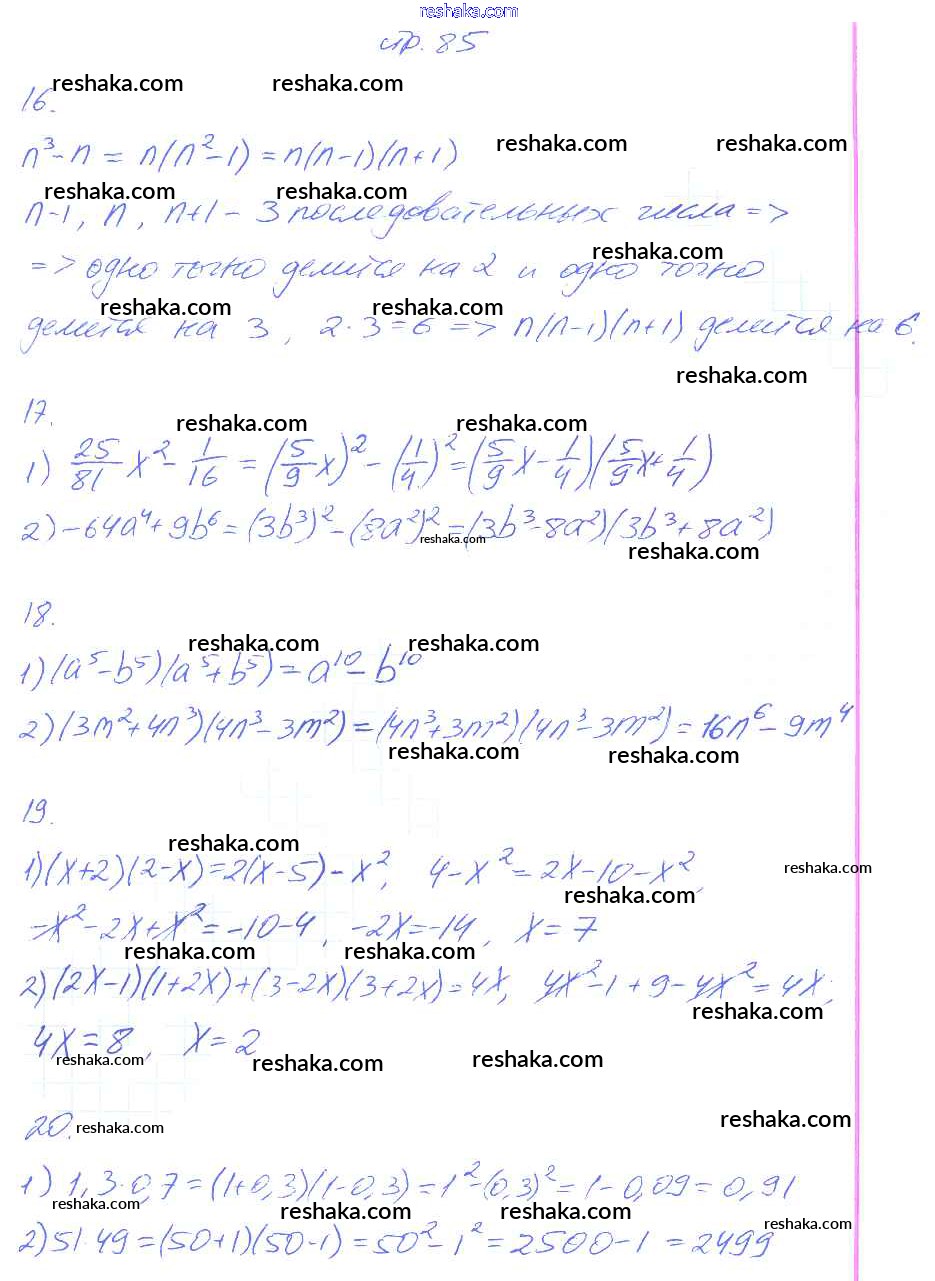 reshaka.com
стр. 85
reshaka.com reshaka.com
16.
reshaka.com reshaka.com
n³-n = n(n²-1) = n(n-1)(n+1)
reshaka.com reshaka.com
n-1, n, n+1 - 3 последовательных числа =>
reshaka.com
=> одно точно делится на 2 и одно точно
reshaka.com reshaka.com
делится на 3, 2·3=6 => n(n-1)(n+1) делится на 6.
reshaka.com
17.
reshaka.com reshaka.com
1) 25/81 x² - 1/16 = (5/9 x)² - (1/4)² = (5/9 x - 1/4)(5/9 x + 1/4)
2) -64a⁴+9b⁶ = (3b³)² - (8a²)² = (3b³-8a²)(3b³+8a²)
reshaka.com
reshaka.com
18.
reshaka.com reshaka.com
1) (a⁵-b⁵)(a⁵+b⁵) = a¹⁰-b¹⁰
2) (3m²+4n³)(4n³-3m²) = (4n³+3m²)(4n³-3m²) = 16n⁶-9m⁴
reshaka.com reshaka.com
19.
reshaka.com
1) (x+2)(2-x)=2(x-5)-x², 4-x²=2x-10-x²,
reshaka.com
reshaka.com
-x²-2x+x²=-10-4, -2x=-14, x=7
reshaka.com reshaka.com
2) (2x-1)(1+2x)+(3-2x)(3+2x)=4x, 4x²-1+9-4x²=4x;
reshaka.com
4x=8, x=2
reshaka.com reshaka.com reshaka.com
reshaka.com
20.
reshaka.com
1) 1,3·0,7=(1+0,3)(1-0,3)=1²-(0,3)²=1-0,09=0,91
reshaka.com reshaka.com reshaka.com
reshaka.com
2) 51·49=(50+1)(50-1)=50²-1²=2500-1=2499